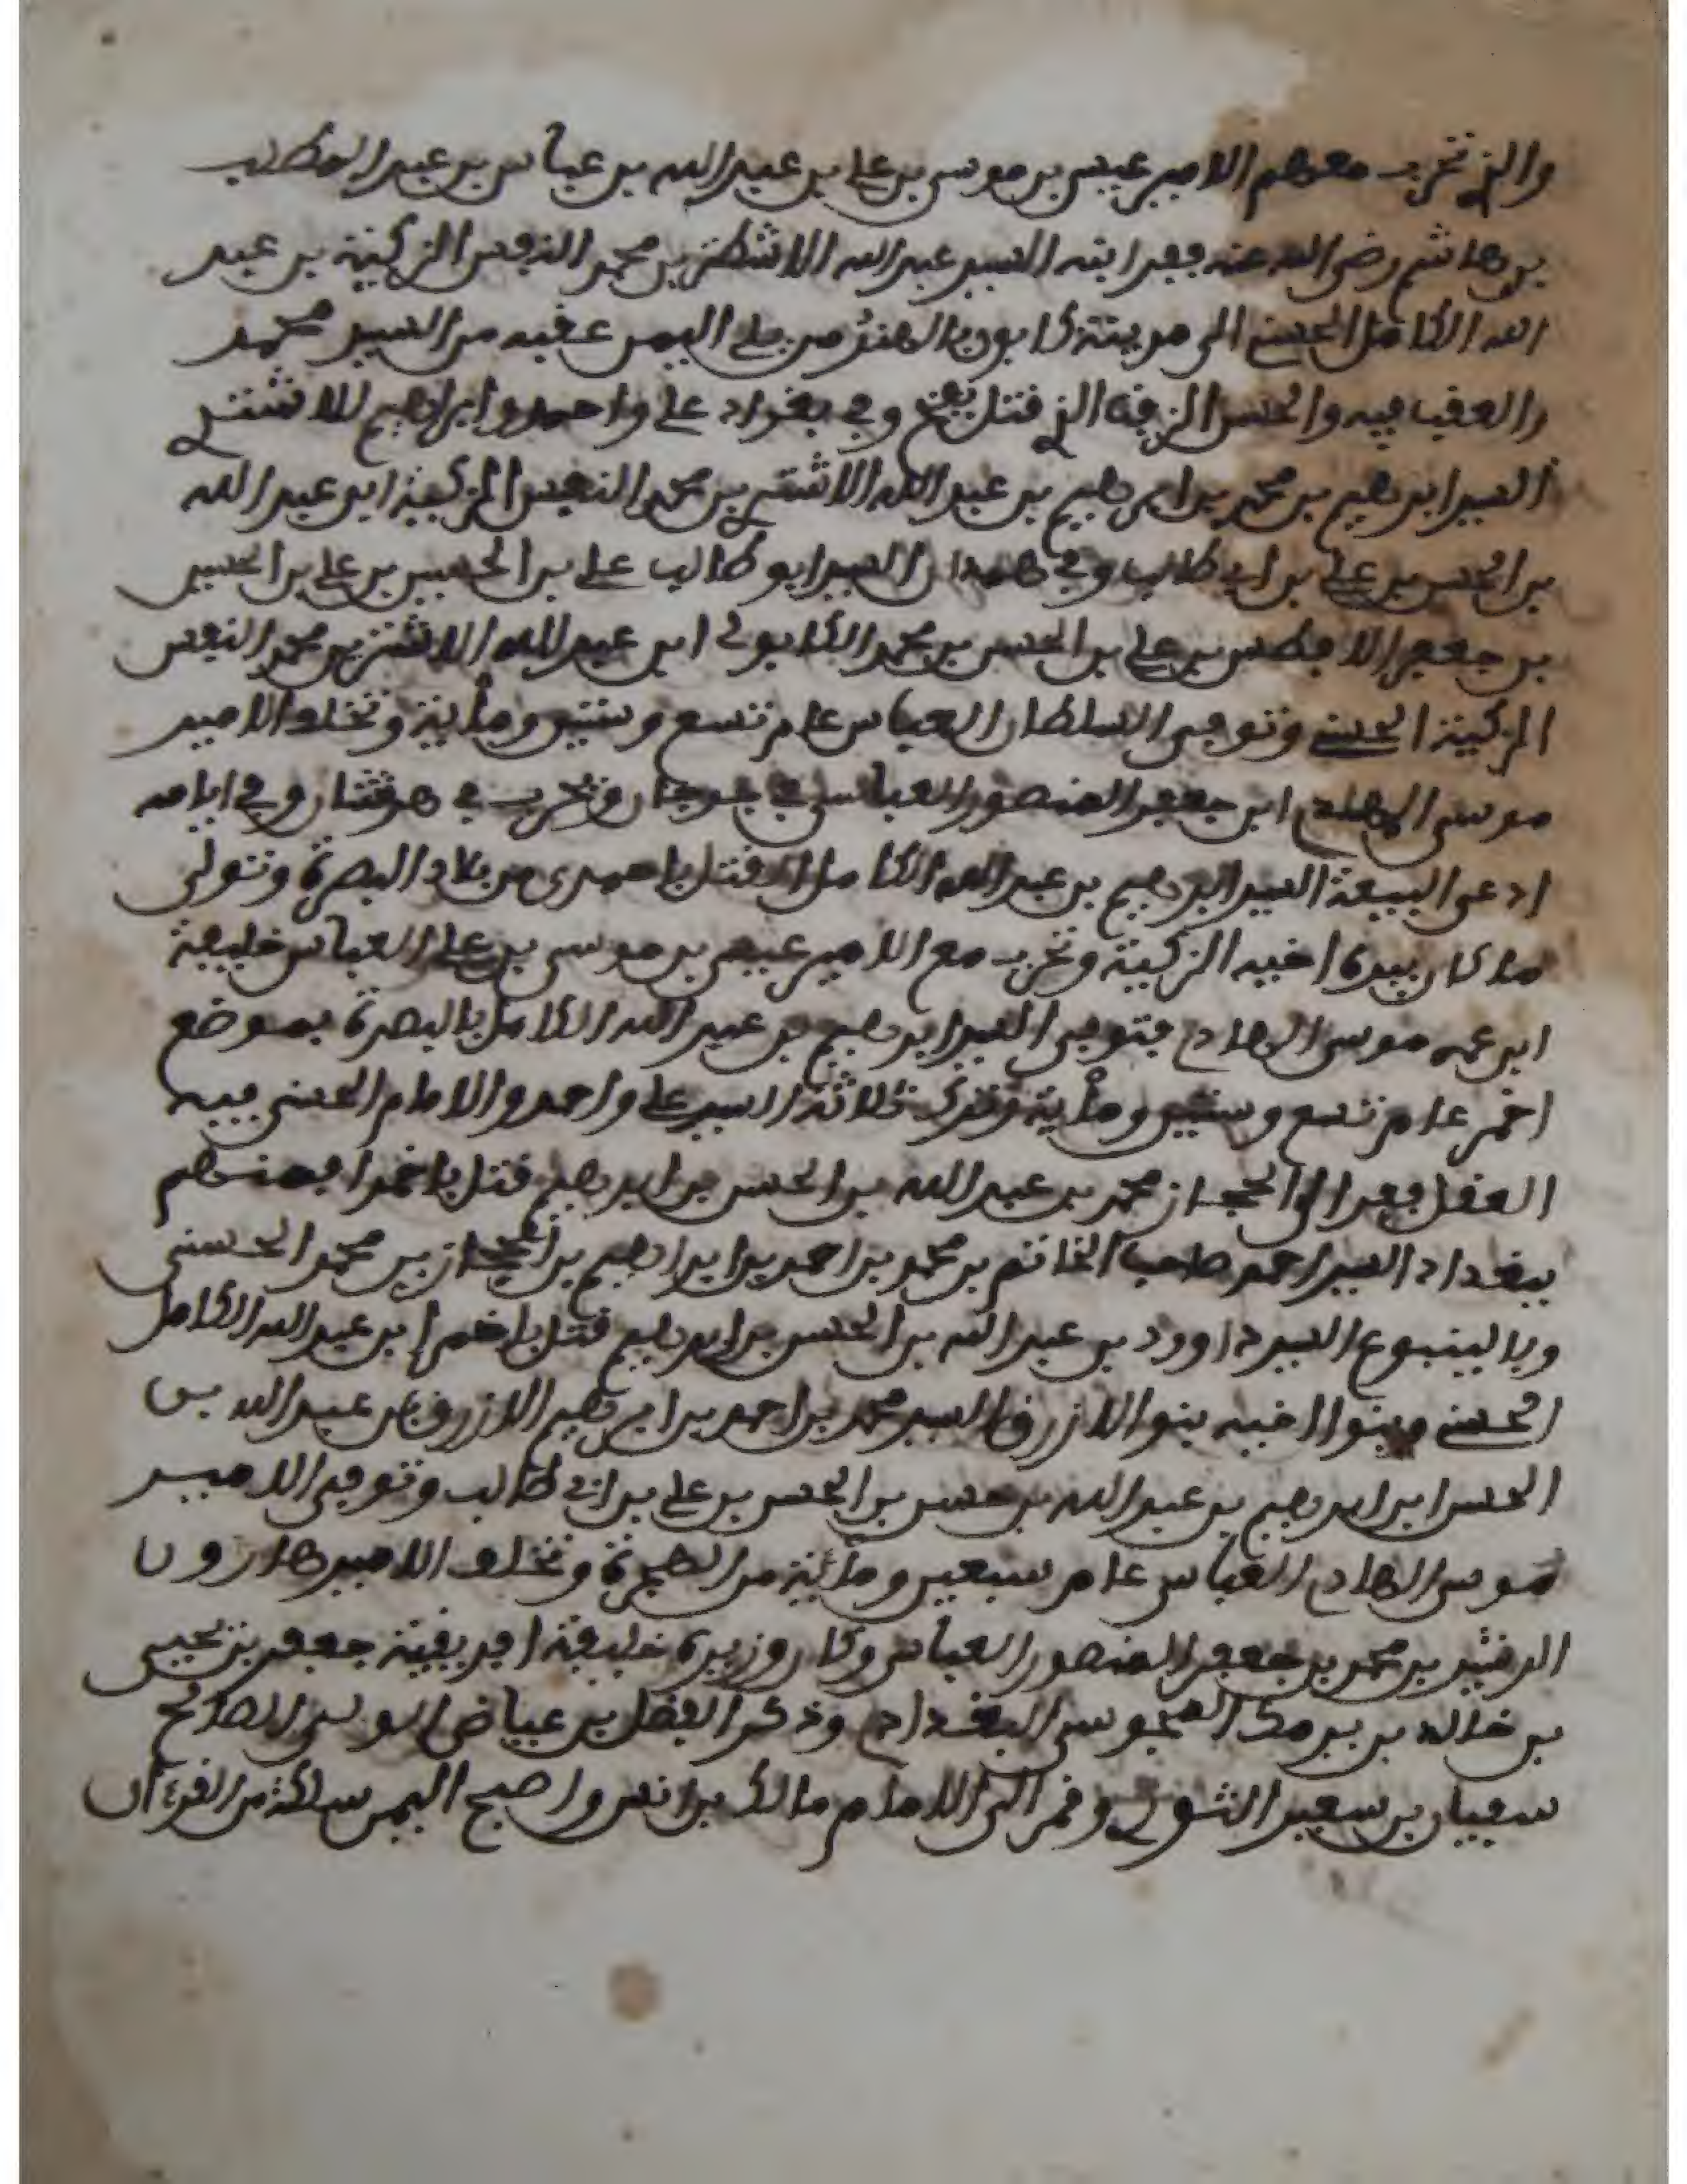 والذي تحرب معهم الامير عيسى بن موسى بن علي بن عبد الله بن عباس بن عبد المطلب
بن هاشم رضي الله عنه ففر ابنه السيد عبد الله الاشطر بن محمد النفس الزكية بن عبد
الله الكامل الحسني الى مدينة كابور بالهند من على اليمن عقبه من السيد محمد
والعقب فيه والحسن الذي قتل بفخ وفي بغداد علي واحمد وابراهيم للاشتر
السيد ابرهيم بن محمد بن ابرهيم بن عبد الله الاشتر بن محمد النفس الزكية ابن عبد الله
بن الحسن بن علي بن ابي طالب وفي همدان السيد ابو طالب علي بن الحسين بن علي بن الحسين
بن جعفر الافطس بن علي بن الحسن بن محمد الكابولي ابن عبد الله الاشتر بن محمد النفس
الزكية الحسني وتوفى السلطان العباس عام تسع وستين ومأية وتخلف الامير
موسى الهادي ابن جعفر المنصور العباسي في جرجان وتحرب في وفي ايامه
ادعى البيعة السيد ابرهيم بن عبد الله الكامل قتل باحمرى من بلاد البصرة وتولى
ما كان بيده اخيه الزكية وتحرب مع الامير عيسى بن موسى بن علي العباس خليفة
ابن عمه موسى الهادي فتوفى السيد ابرهيم بن عبد الله الكامل بالبصرة بموضع
اخمر عام تسع وستين ومأية وترك ثلاثة السيد علي واحمد والامام الحسن فيه
العقل ففر الى الحجاز محمد بن عبد الله بن الحسن بن ابرهيم قتل باخمرا فمنهم
ببغداد السيد احمد صاحب الخاتم بن محمد بن احمد بن ابراهيم بن الحجاز بن محمد الحسني
وبالينبوع السيد داوود بن عبد الله بن الحسن بن ابرهيم قتل باخمرا بن عبد الله الكامل
الحسني وبنوا اخيه بنوا الازرق السيد محمد بن احمد بن ابرهيم الازرق بن عبد الله بن
الحسن ابن ابرهيم بن عبد الله بن حسن بن الحسن بن علي بن ابي طالب وتوفى الامير
موسى الهادي العباس عام سبعين ومأية من الهجرة وتخلف الامير هارون
الرشيد بن محمد بن جعفر المنصور العباس وكان وزيره خليفة افريقية جعفر بن يحيى
بن خالد بن برمك المجوسي البغدادي وذكر الفضل بن عياض الصالح
سفيان بن سعيد الثوري وقرا الى الامام مالك بن انس واصبح اليمن سلكة من القرءان